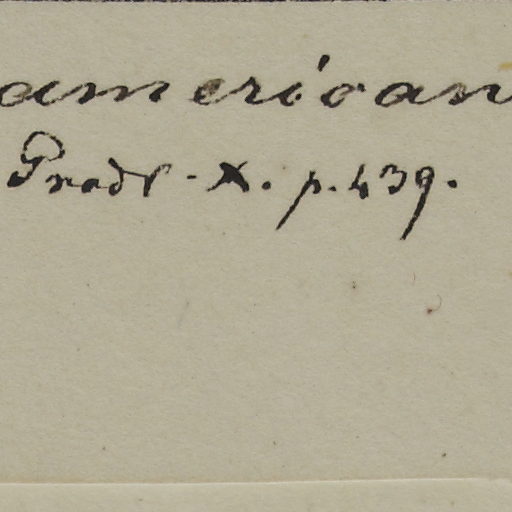 american
Prodr. X. p. 439.